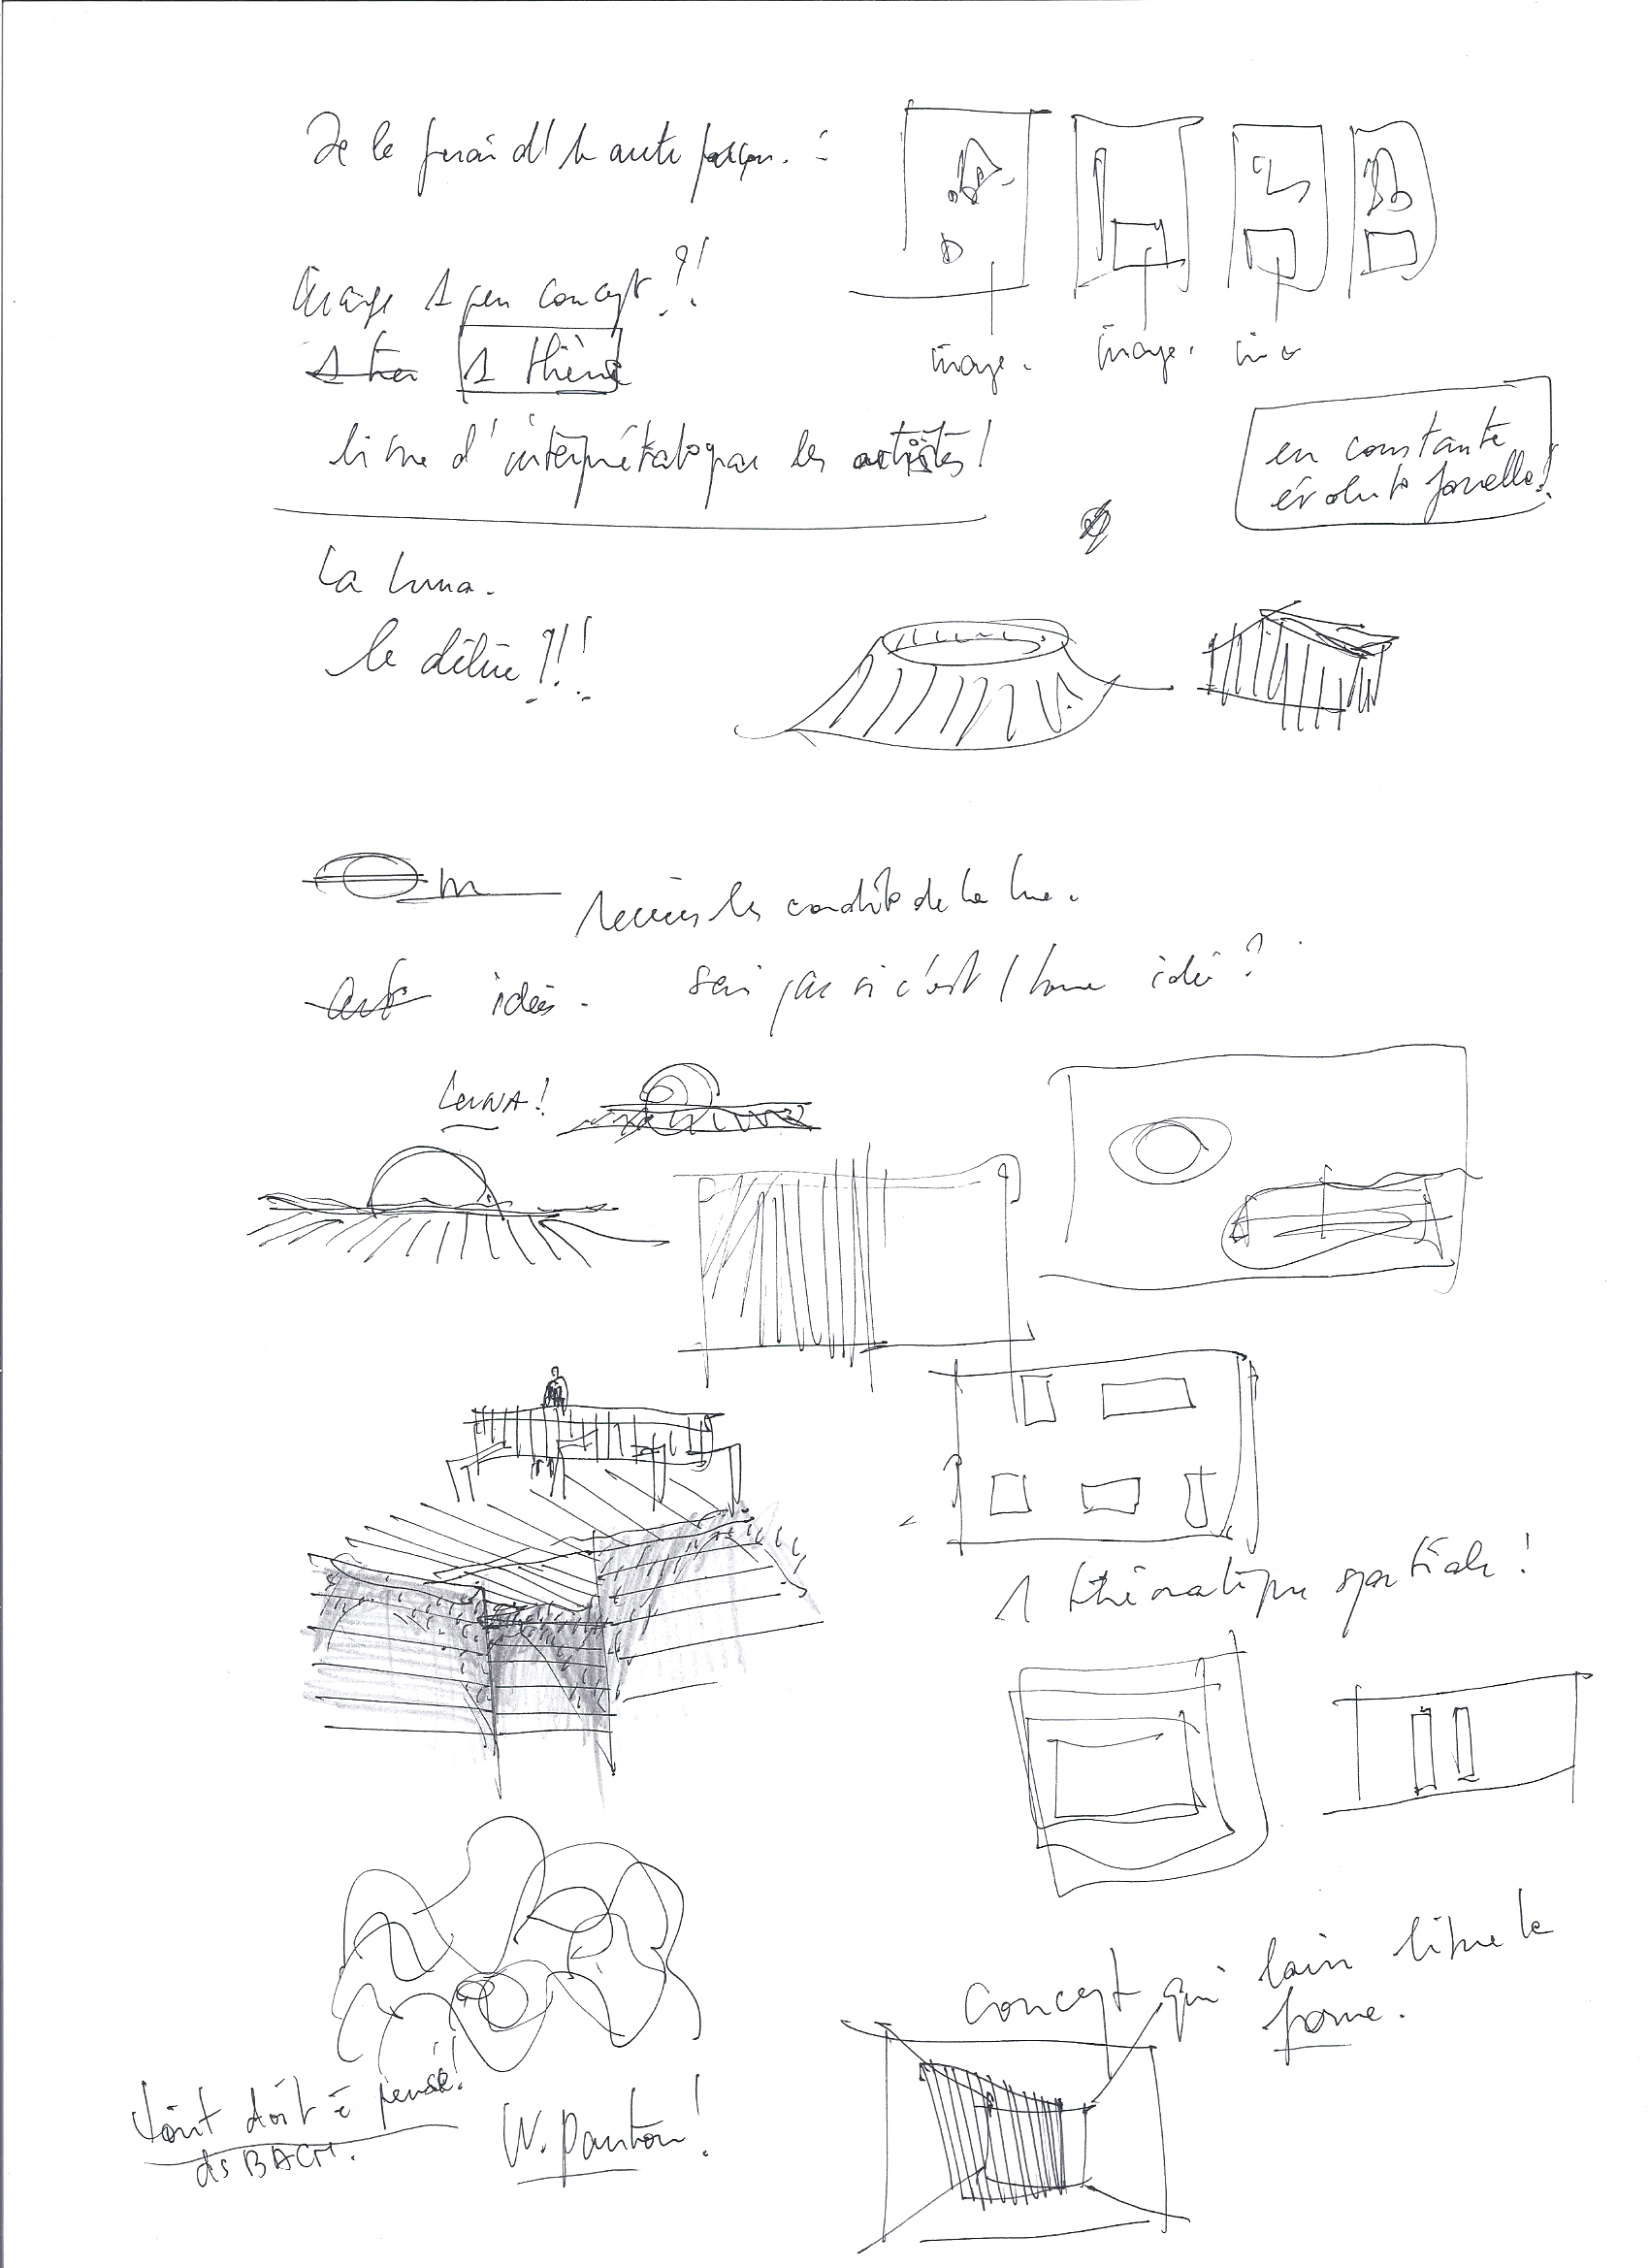 Je le ferai d'1 autre façon. :
Change 1 peu concept ?!
1 thème
libre d'interprétat° par les artistes !
image.
image.
en constante
évolut° formelle !
La luna.
le délire ?!!
les condit° de la lune.
idées.
sais pas si c'est 1 bonne idée ?
LUNA !
1 thématique spatiale !
Concept qui laisse libre la
forme.
tout doit ê pensé !
ds BACH.
W. Panton !